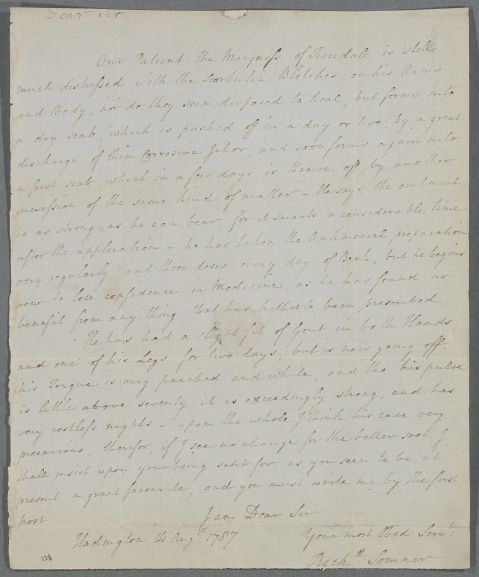 Dear Sir
Our Patient the Marquess of Tweedale is still
much distressed with the Scorbutic Blotches on his Arms
and Body, nor do they seem disposed to heal, but forms into
a dry scab, which is pushed of in a day or two, by a great
discharge of thin Corrosive Ichor, and soon forms again into
a fresh scab, which in a few days is thrown off by another
of the same kind of matter - He says the ointment
is as strong as he can bear, for it smarts a considerable time
after the application - he has taken the Antimonial preparation
very regularly and three doses every day of Bark, but he begins
now to lose confidence in Medicine, as he has found no
benefit from any thing that has hitherto been prescribed
He has had a slight fit of Gout in both Hands
and one of his Legs for two days, but is now going off.
his Tongue is very parched and white, and tho his pulse
is little above seventy it is exceedingly strong, and has
very restless nights - upon the whole I think his case very
precarious, therefor, if I see no change for the better soon, I
shall insist upon your being sent for, as you seem to be at
present a great favourite, and you must write me by the first
post
I am Dear Sir
Hadington 14 Augt 1787 Your most Obedt Servt:
Richd Somner
138